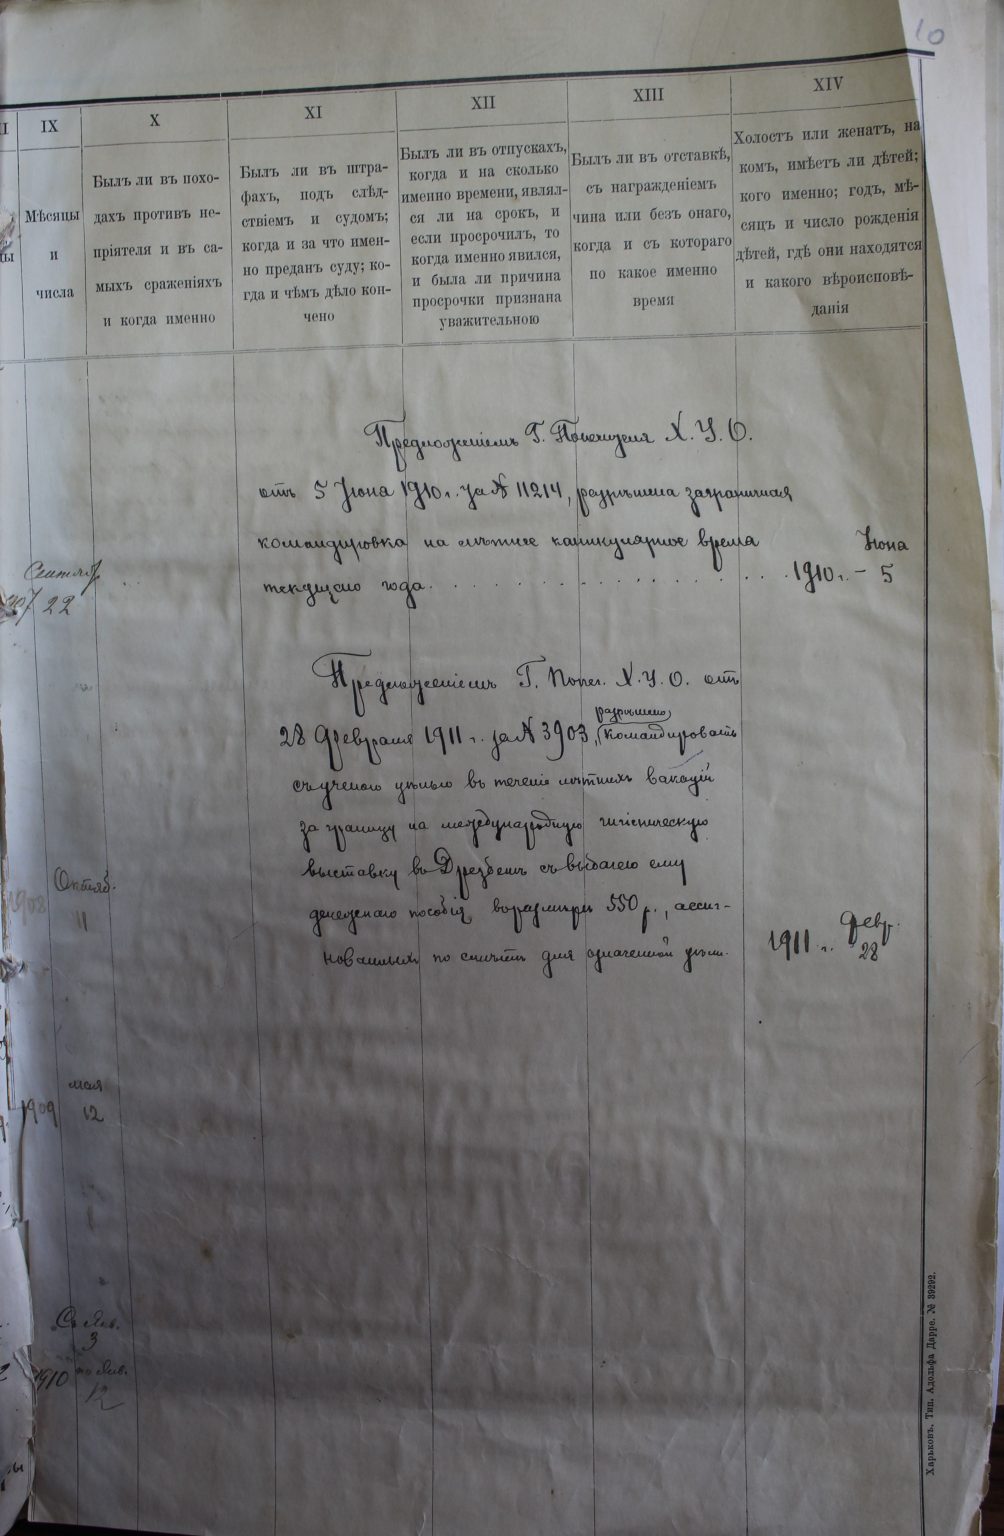 10
IX
X
XI
XII
XIII
XIV
Мѣсяцы
и
числа
Былъ ли въ похо-
дахъ противъ не-
пріятеля и въ са-
мыхъ сраженіяхъ
и когда именно
Былъ ли въ штра-
фахъ, подъ слѣд-
ствіемъ и судомъ;
когда и за что имен-
но преданъ суду; ко-
гда и чѣмъ дѣло кон-
чено
Былъ ли въ отпускахъ,
когда и на сколько
именно времени, являл-
ся ли на срокъ, и
если просрочилъ, то
когда именно явился,
и была ли причина
просрочки признана
уважительною
Былъ ли въ отставкѣ,
съ награжденіемъ
чина или безъ онаго,
когда и съ котораго
по какое именно
время
Холостъ или женатъ, на
комъ, имѣетъ ли дѣтей;
кого именно; годъ, мѣ-
сяцъ и число рожденія
дѣтей, гдѣ они находятся
и какого вѣроисповѣ-
данія
Предложеніемъ Г. Попечителя Х. У. О.
отъ 5 Іюна 1910 г. за № 11214, разрѣшена заграничная
командировка на лѣтнее каникулярное время
Іюна
текущаго года. 1910 г. – 5
Сентяб.
22
Предложеніемъ Г. Попеч. Х. У. О. отъ
разрѣшено
28 Февраля 1911 г. за № 3903, командировать
съ ученою цѣлью въ теченіе лѣтнихъ вакацій
за границу на международную гигіеническую
выставку въ Дрезденъ съ выдачею ему
денежнаго пособія, въ размѣрѣ 550 р., ассиг-
нованныхъ по смѣтѣ для означенной цѣли.
1911 г. Февр.
28
Октяб.
1908 11
мая
1909 12
Съ Янв.
3
1910 по Янв.
12
Харьковъ. Тип. Адольфа Дарре. № 39292.